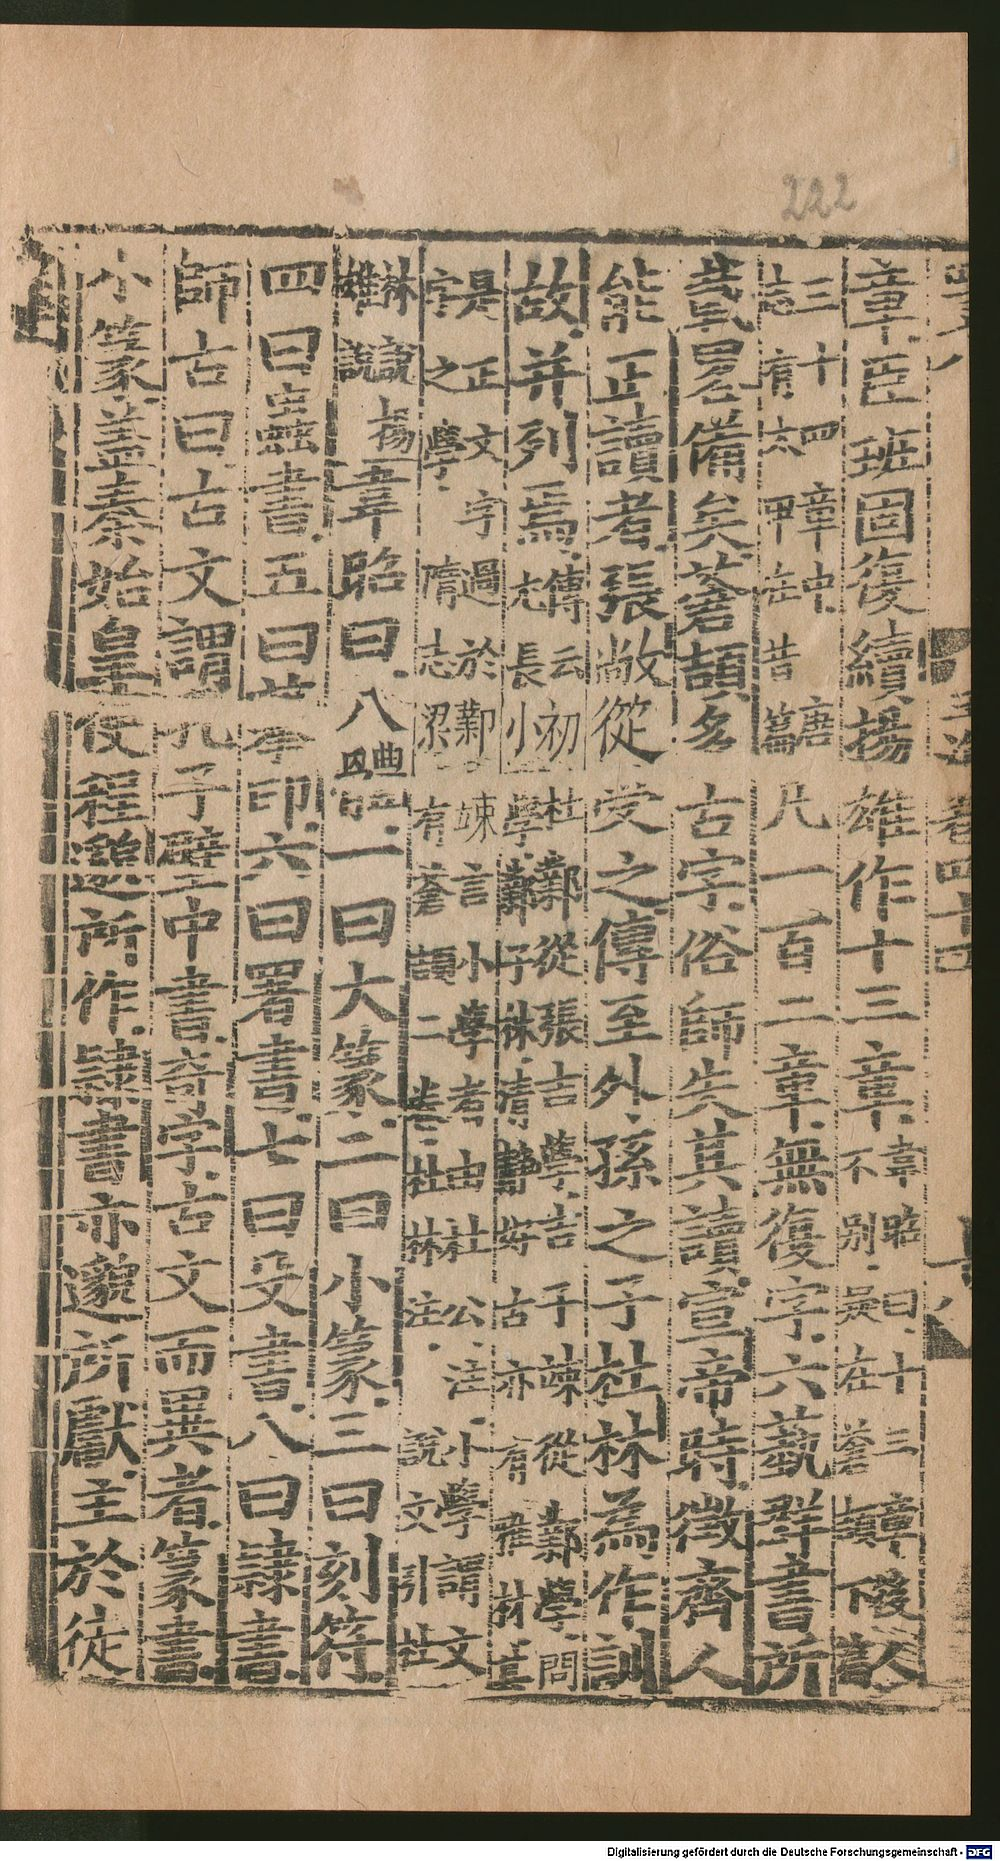 222
卷四十四
章臣班固復續揚雄作十三章韋昭曰十三章後人不别疑在蒼頡下
三十四章中唐志有太甲在昔篇凡一百二章無復字六蓺群書所
載略備矣蒼頡多古字俗師失其讀宣帝時徵齊人
能正讀者張敞從受之傳至外孫之子杜林爲作訓
故并列焉傳云初杜鄴從張吉學吉子竦從鄴學問
尤長小學鄴子林清靜好古亦有雅材
是正文字過於鄴竦言小學者由杜公注小學謂文
字之學隋志梁有蒼頡二卷杜林注說文引杜
林說揚雄說韋昭曰八體一曰大篆二曰小篆三曰刻符
四曰蟲書五曰摹印六曰署書七曰殳書八曰隸書
師古曰古文謂孔子壁中書奇字古文而異者篆書
小篆蓋秦始皇使程邈所作隸書亦邈所獻主於徒
Digitalisierung gefördert durch die Deutsche Forschungsgemeinschaft - DFG